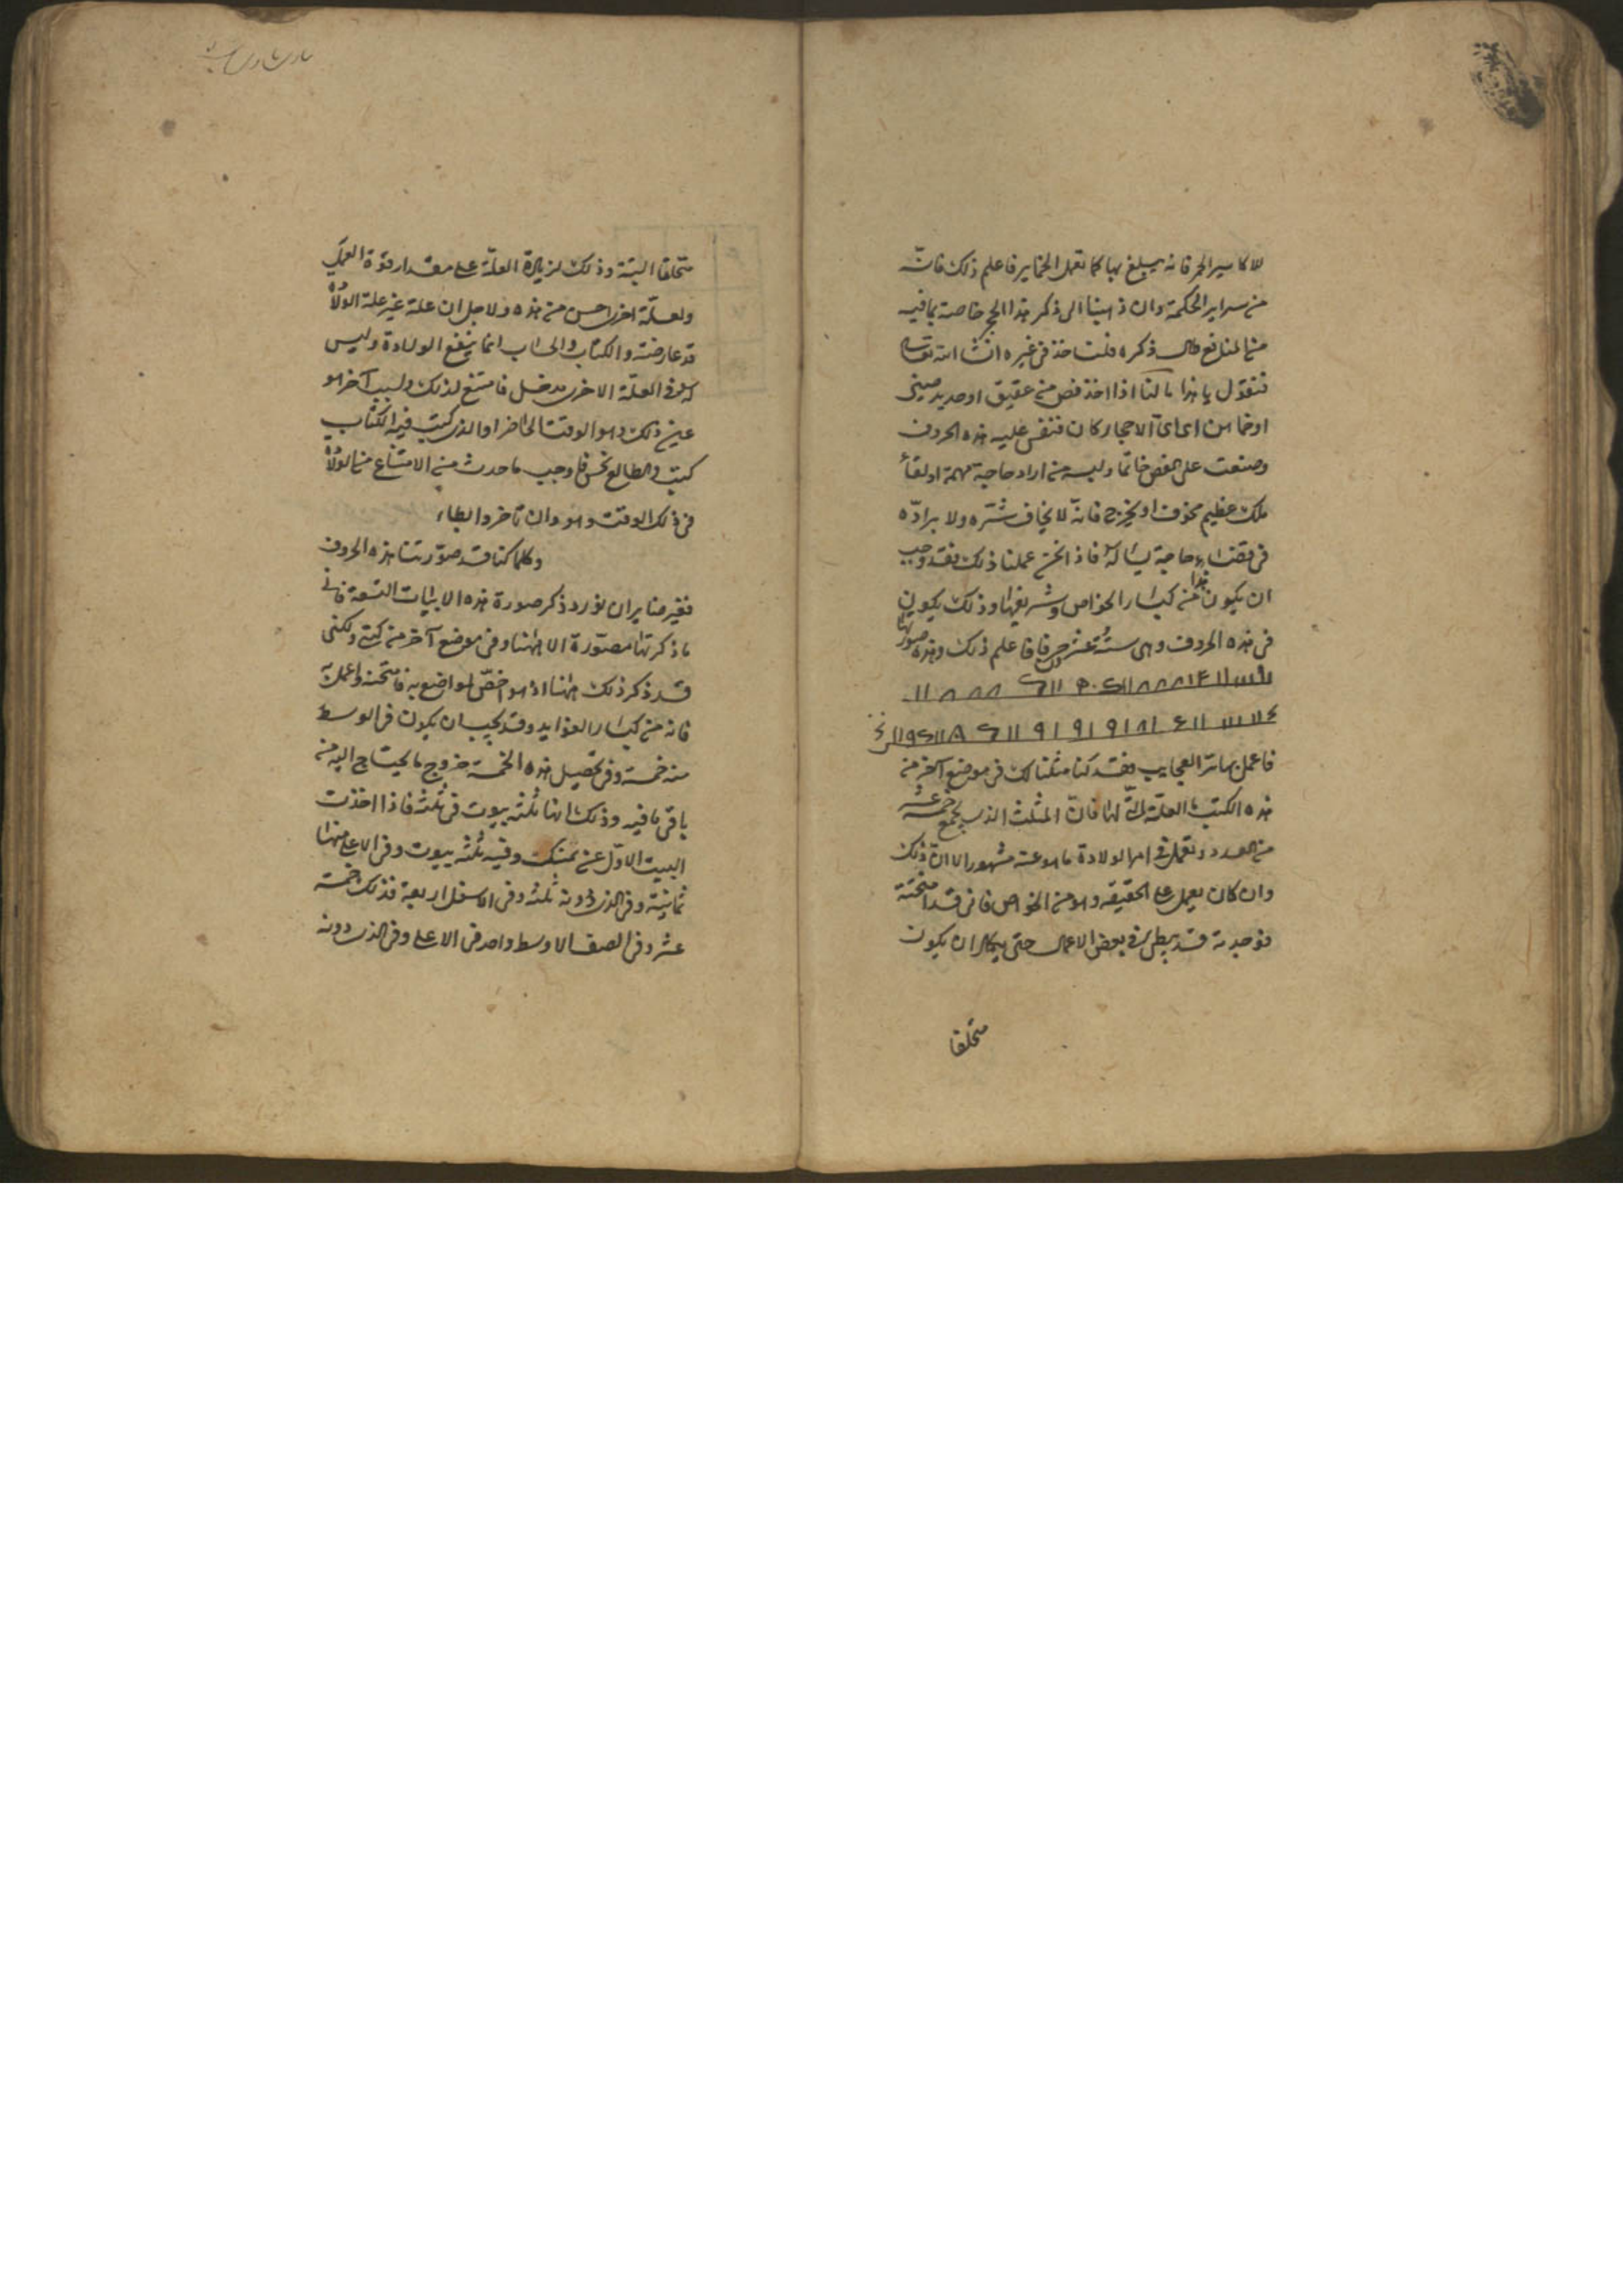 للاكاسير الحمر فانه يبلغ بها كما تعمل الخماير فاعلم ذلك فانّه
من سراير الحكمة وان ذهبنا الى ذكر هذا الحجر خاصة بما فيه
من المنافع طال ذكره فلناخذ فى غيره انشا الله تعالى
فنقول يا هذا اذا اخذ فص من عقيق او حديد صينى
او نحاس او اىّ الاحجار كان فنقش عليه هذه الحروف
وصنعت على الفص خاتما ولبسه من اراد حاجة مهمة او لقاء
ملك عظيم مخوف او يخرج فانه لا يخاف شرّه ولا يرادّه
فى قضاء حاجة يساله فاذا نحن عملنا ذلك فقد وجب
ان يكون هذا من كبار الخواص وشريفها وذلك يكون
فى هذه الحروف وهى ستة عشر حرفا فاعلم ذلك وهذه صورتها
فاعمل بها تر العجايب فقد كنا مثلنا لك فى موضع آخر من
هذه الكتب العلّة لها فانّ المثلث الذى يجمع خمسة عشر
من العدد وتعمل فى امر الولادة ما هو عنه مشهور الا انّ ذلك
وان كان يعمل على الحقيقه وهو من الخواص فانى قد امتحنته
فوجدته قد يبطى فى بعض الاعمال حتى يكاد ان يكون
متخلفا
متخلفا البتة وذلك لزيادة العلّة على مقدار قوّة العمل
ولعلّة اخرى احسن من هذه ولاجل ان علة غير علة الولاة
قد عارضته والكتاب والحساب انما ينفع الولادة وليس
له فى العلّة الاخرى مدخل فامتنع لذلك ولسبب آخر هو
عين ذلك وهو الوقت الحاضر او الذى كتب فيه الكتاب
كتب والطالع نحس فاوجب ما حدث من الامتناع من الولاة
فى ذلك الوقت وهو وان تاخر وابطاء
وكلما كنا قد صوّرتنا هذه الحروف
فغير ضاير ان نورد ذكر صورة هذه الابيات التسعة فانى
ما ذكرتها مصوّرة الا ههنا وفى موضع آخر من كتبى ولكنى
قد ذكر ذلك ههنا اذ هو اخصّ المواضع به فامتحنه واعمل به
فانه من كبار الفوايد وقد يجب ان يكون فى الوسط
منه خمسة وفى تحصيل هذه الخمسة خروج ما يحتاج اليه من
باقى ما فيه وذلك انها ثلثة بيوت فى ثلثة فاذا اخذت
البيت الاوّل عن يمينك وفيه ثلثه بيوت وفى الاعلى منها
ثمانية وفى الذى دونه ثلثه وفى الاسفل اربعة فذلك خمسة
عشر وفى الصف الاوسط واحد فى الاعلى وفى الذى دونه